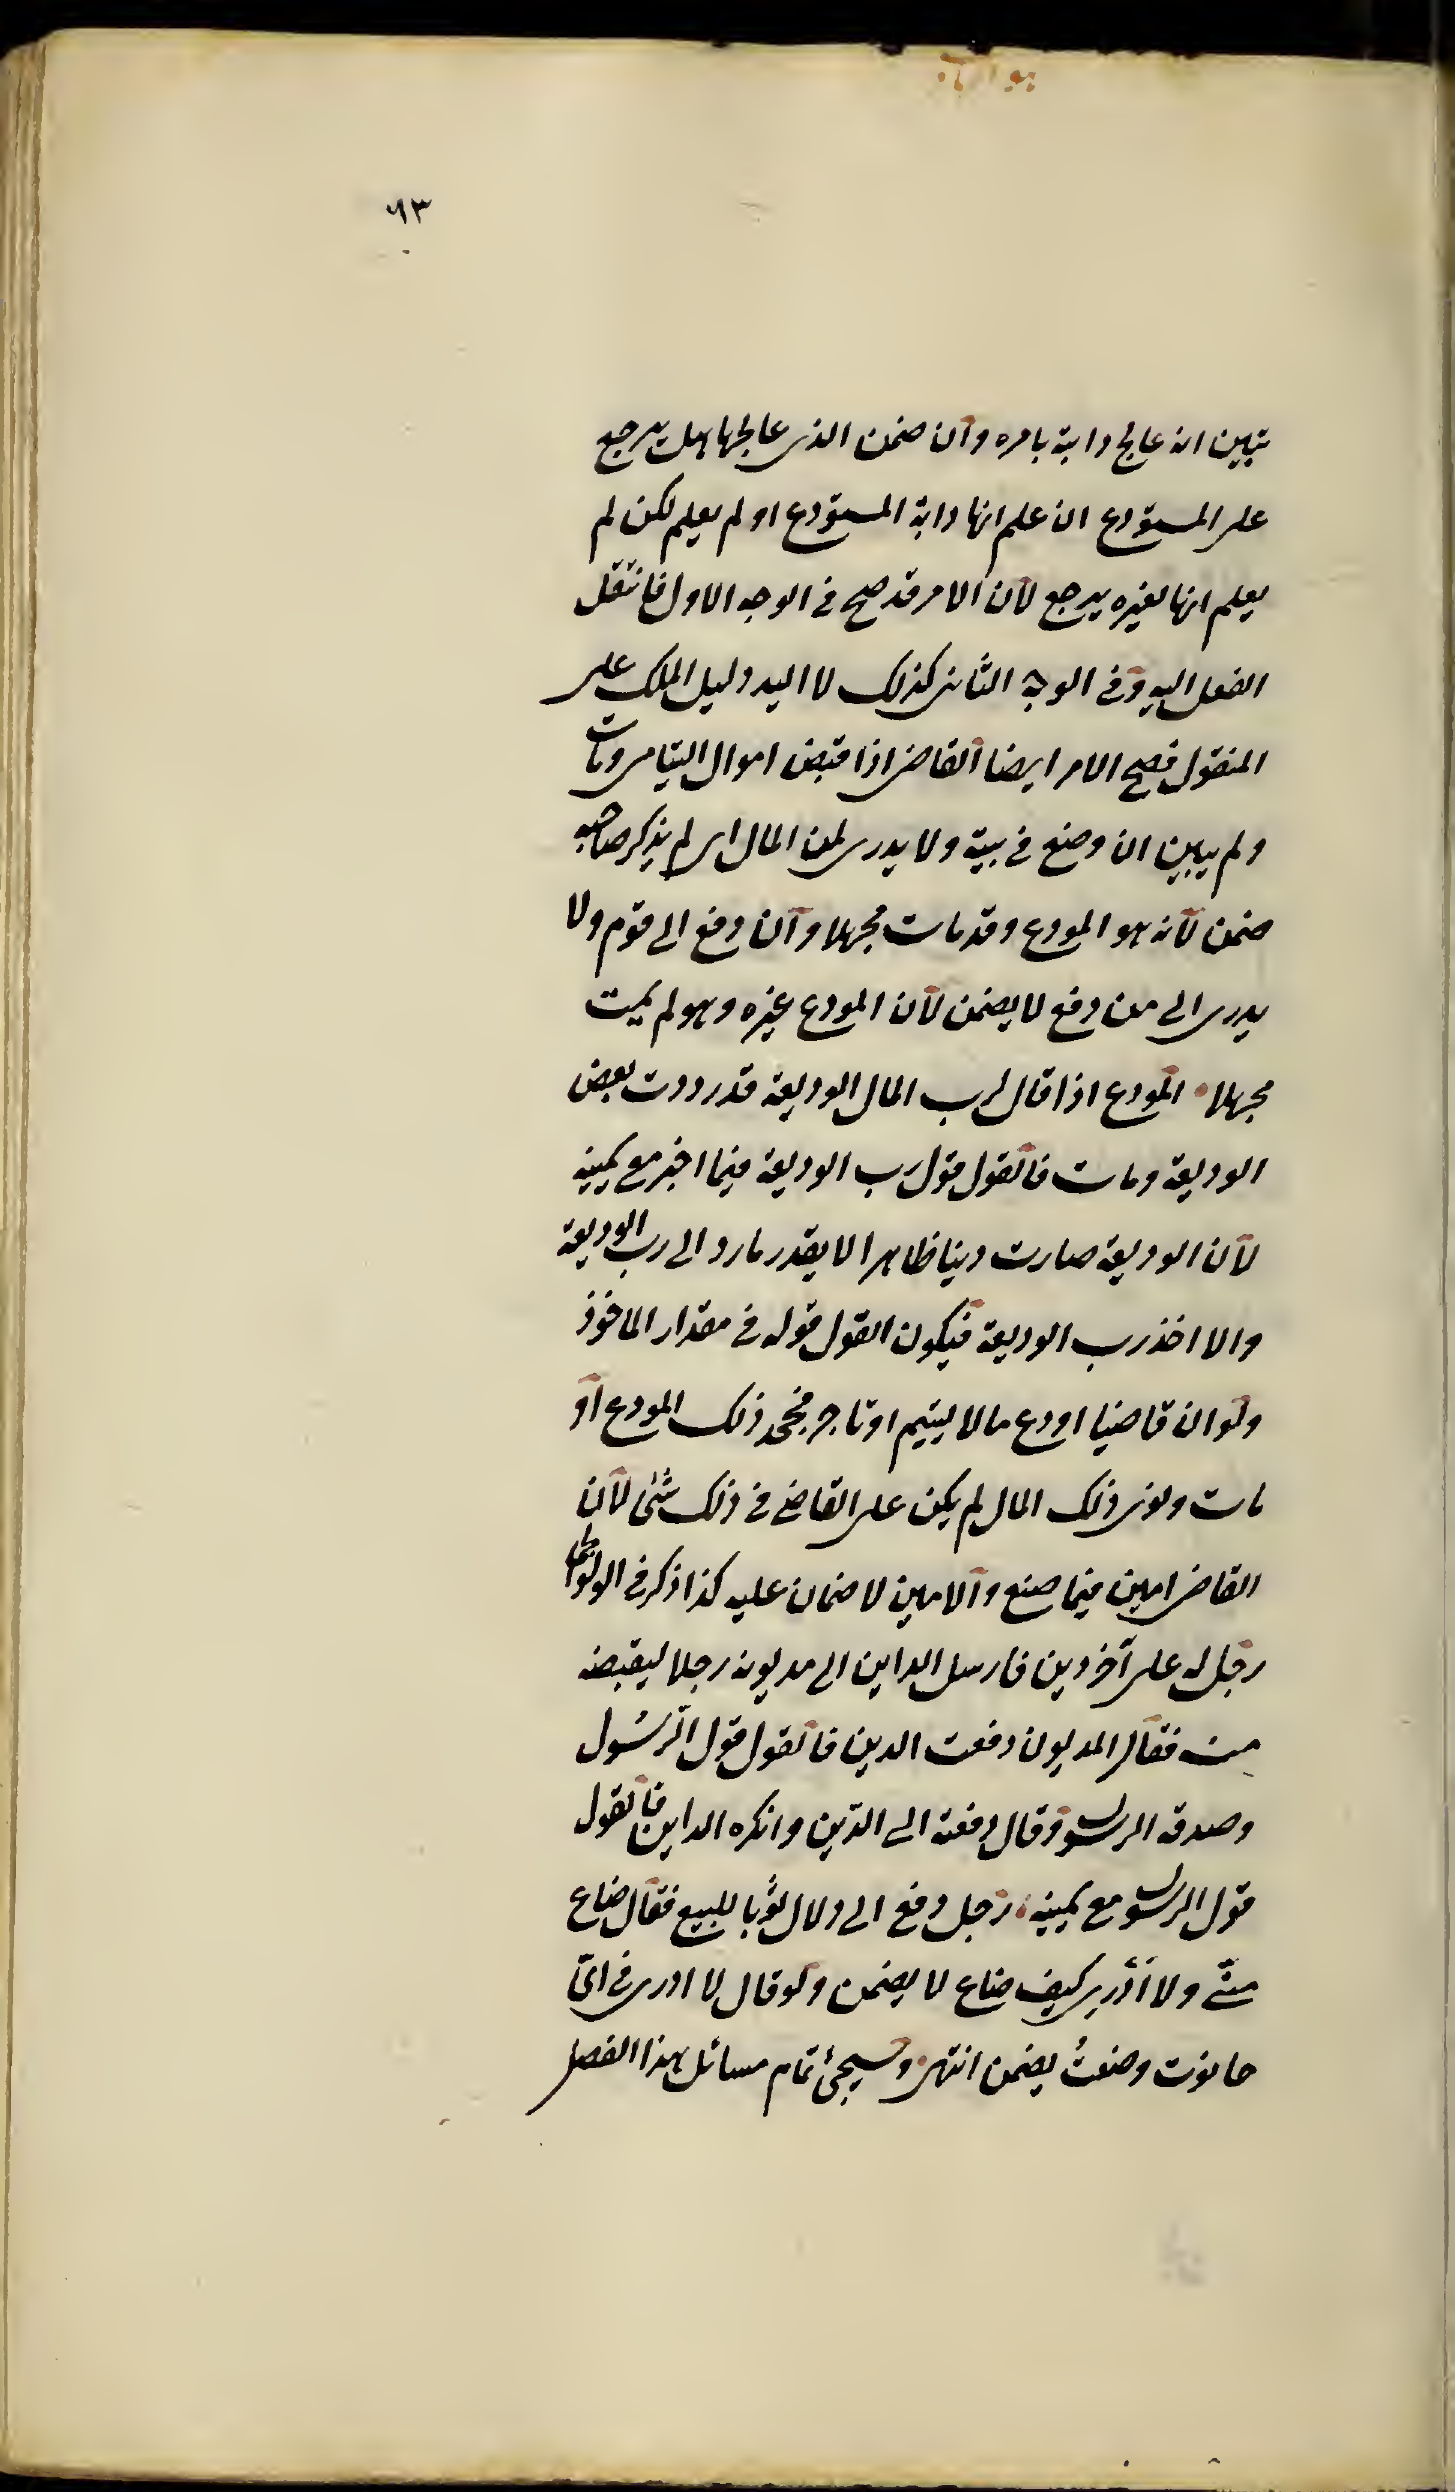 ٦٣
تبين انه عالج دابة بامره وان ضمن الذى عالجها هل يرجع
على المستودع ان علم انها دابة المستودع او لم يعلم لكن لم
يعلم انها لغيره يرجع لان الامر قد صح فى الوجه الاول فانتقل
الفعل اليه وفى الوجه الثانى كذلك لا اليد دليل الملك على
المنقول فصح الامر ايضا القاضى اذا قبض اموال اليتامى ومات
ولم يبين ان وضع فى بيته ولا يدرى لمن المال اى لم يذكر صاحبه
ضمن لانه هو المودع وقد مات مجهلا وان دفع الى قوم ولا
يدرى الى من دفع لا يضمن لان المودع غيره وهو لم يمت
مجهلا المودع اذا قال لرب المال الوديعة قد رددت بعض
الوديعة ومات فالقول قول رب الوديعة فيما اخبر مع يمينه
لان الوديعة صارت دينا ظاهرا الا بقدر ما رد الى رب الوديعة
والا اخذ رب الوديعة فيكون القول قوله فى مقدار الماخوذ
ولو ان قاضيا اودع مالا ليتيم او تاجر فجحد ذلك المودع او
مات ونوى ذلك المال لم يكن على القاضى فى ذلك شئ لان
القاضى امين فيما صنع والامين لا ضمان عليه كذا ذكر فى
رجل له على آخر دين فارسل الداين الى مديونه رجلا ليقبضه
منه فقال المديون دفعت الدين فالقول قول الرسول
وصدقه الرسول وقال دفعته الى الدين وانكره الداين فالقول
قول الرسول مع يمينه رجل دفع الى دلال ثوبا للبيع فقال ضاع
منّى ولا أدرى كيف ضاع لا يضمن ولو قال لا ادرى فى اىّ
حانوت وضعتُ يضمن انتهى وسيجئ تمام مسائل هذا الفصل